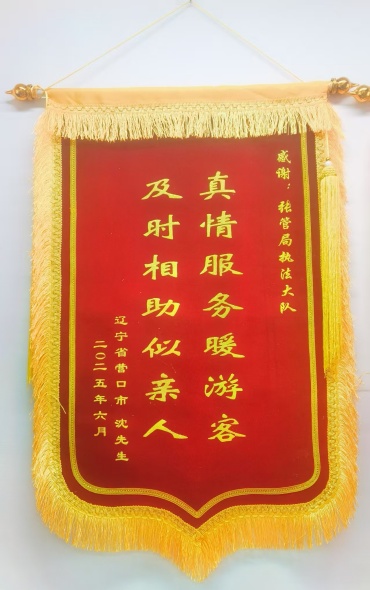 感谢：张管局执法大队
真情服务暖游客
及时相助似亲人
辽宁省营口市 沈先生
二〇二五年六月